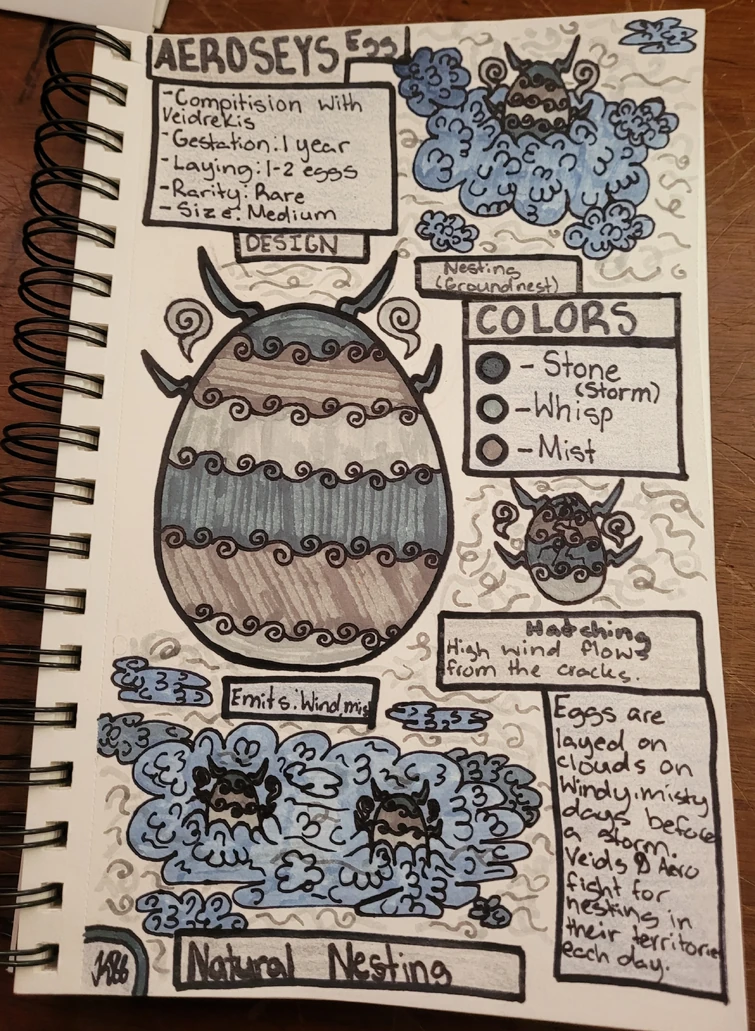 AEROSEYS Egg
- Compitision with
Veidrekis
- Gestation: 1 year
- Laying: 1-2 eggs
- Rarity: Rare
- Size: Medium
DESIGN
Nesting
(Groundnest)
COLORS
- Stone
(Storm)
- Whisp
- Mist
Hatching
High wind flows
from the cracks.
Emits: Wind, mist
Eggs are
layed on
clouds on
Windy, misty
days before
a storm.
Veids & Aero
fight for
nesting in
their territories
each day.
Natural Nesting